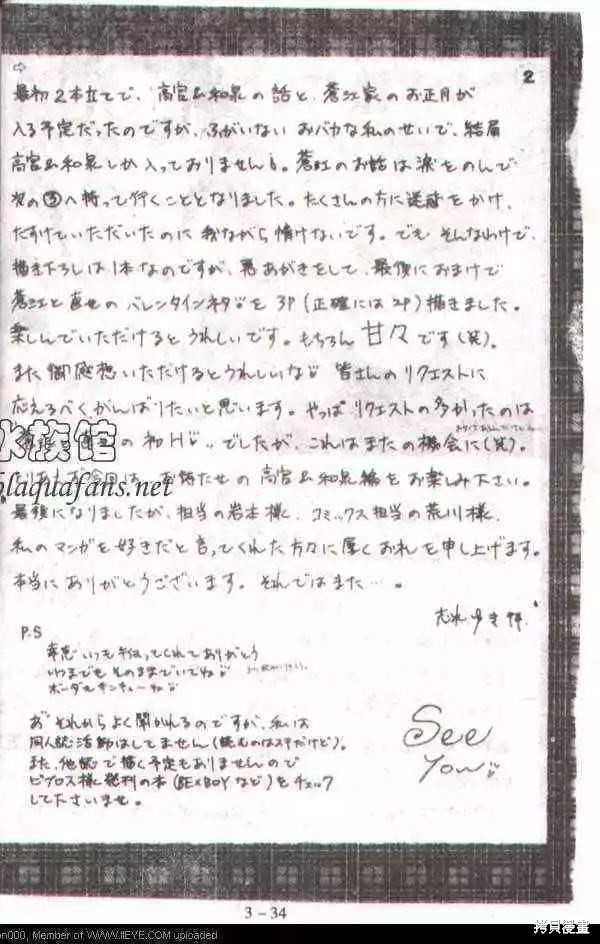 ⇨
2
最初2本立てで、高宮&和泉の話と、蒼江家のお正月が
入る予定だったのですが、ふがいない おバカな私のせいで、結局
高宮&和泉しか入っておりません。蒼江のお話は涙をのんで
次の③へ持って行くこととなりました。たくさんの方に迷惑をかけ、
たすけていただいたのに 我ながら情けないです。でも そんなわけで、
描き下ろしは1本なのですが、悪あがきをして、最後におまけで
蒼江と直也の バレンタインネタを 3P(正確には2P)描きました。
楽しんでいただけると うれしいです。もちろん 甘々です(笑)。
また御感想いただけるとうれしいな 皆さんのリクエストに
応えるべくがんばりたいと思います。やっぱ リクエストの多かったのは
の初H でしたが、これはまたの機会に(笑)。
水族館
は、お待たせの 高宮&和泉編を お楽しみ下さい。
laquafans.net
最後になりましたが、担当の岩本様、コミックス担当の荒川様、
私のマンガを好きだと言ってくれた方々に厚くお礼を申し上げます。
本当にありがとうございます。それではまた…。
P.S
いつも手伝ってくれてありがとう
いつまでも そのままでいてね
ボーダーもサンキューね
あ゛それからよく聞かれるのですが、私は
同人誌活動はしてません(読むのはスキだけど)。
また、他誌で描く予定もありませんので
ビブロス様発刊の本(BE×BOYなど)をチェック
して下さいませ。
See
You
3-34
on000, Member of WWW.IIEYE.COM uploaded
拷貝漫畫